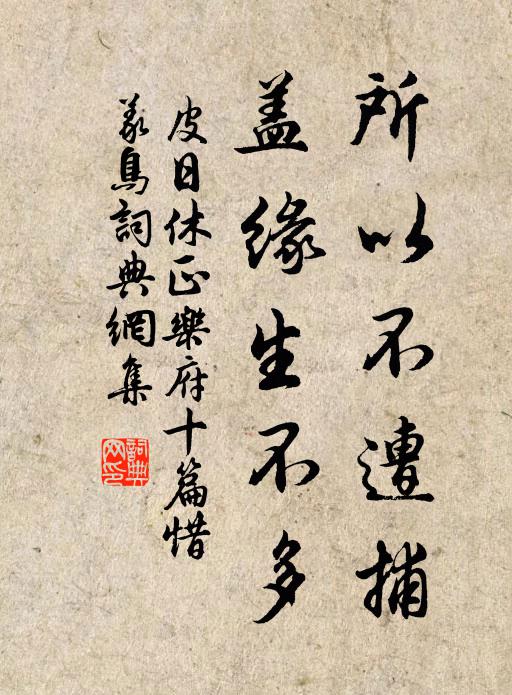 所以不遭捕
蓋緣生不多
皮日休正樂府十篇惜
義鳥詞典網集
詞典網印